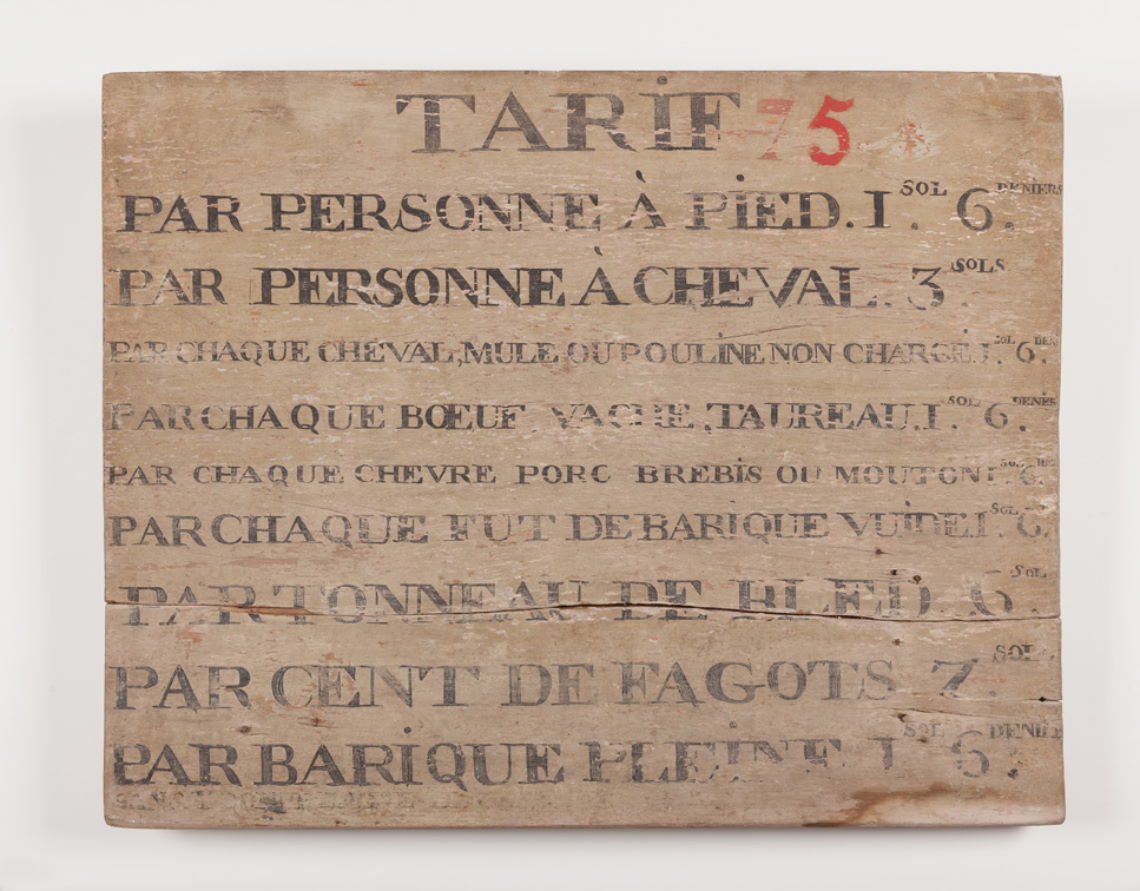 TARIF 75.
PAR PERSONNE À PIED. I. SOL 6. DENIERS
PAR PERSONNE À CHEVAL. 3. SOLS
PAR CHAQUE CHEVAL, MULE OU POULINE NON CHARGÉ. I. SOL 6. DEN
PAR CHAQUE BŒUF, VACHE, TAUREAU. I. SOL 6. DENIER
PAR CHAQUE CHEVRE PORC BREBIS OU MOUTON I. SOL 6. DE
PAR CHAQUE FUT DE BARIQUE VUIDE. I. SOL 6.
PAR TONNEAU DE BLED. 6. SOL
PAR CENT DE FAGOTS 7. SOL.
PAR BARIQUE PLEINE. I. SOL 6. DENIER